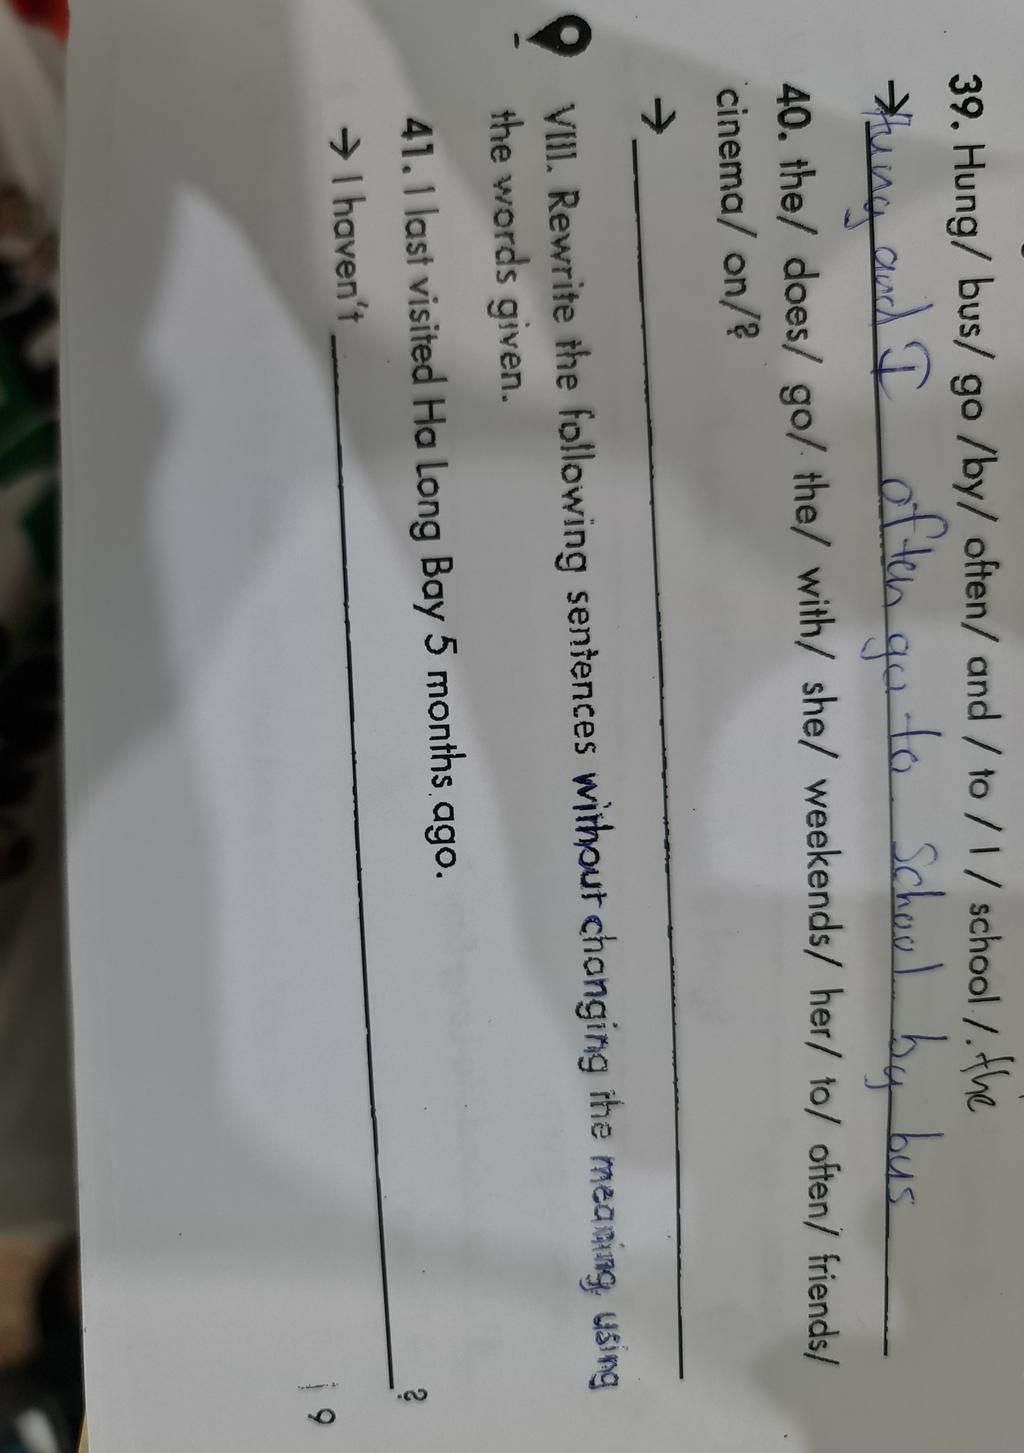 39. Hung/ bus/ go /by/ often/ and / to / I / school /. the
→ Hung and I often go to school by bus
40. the/ does/ go/ the/ with/ she/ weekends/ her/ to/ often/ friends/
cinema/ on/?
→
VIII. Rewrite the following sentences without changing the meaning, using
the words given.
41. I last visited Ha Long Bay 5 months ago.
→ I haven't ?
9